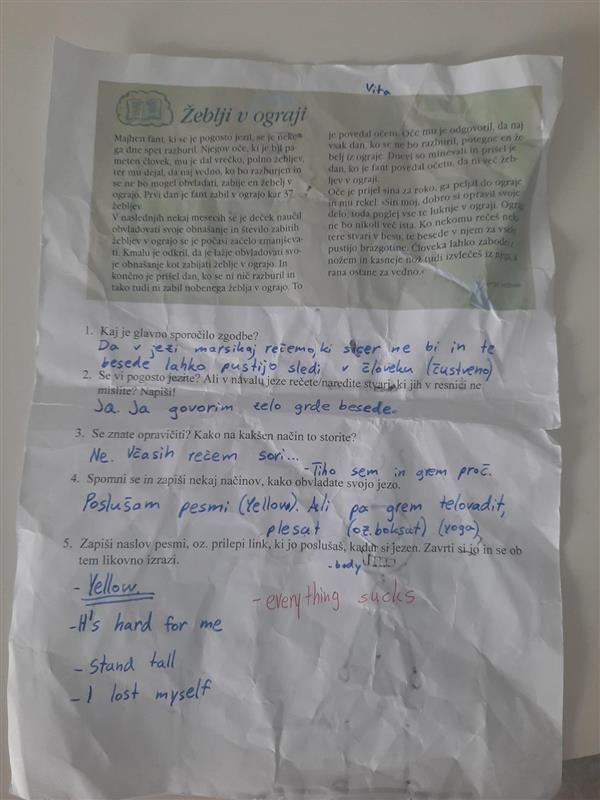 Vita
Žeblji v ograji
Majhen fant, ki se je pogosto jezil, se je neke-
ga dne spet razburil. Njegov oče, ki je bil pa-
meten človek, mu je dal vrečko, polno žebljev,
ter mu dejal, da naj vedno, ko bo razburjen in
se ne bo mogel obvladati, zabije en žebelj v
ograjo. Prvi dan je fant zabil v ograjo kar 37
žebljev.
V naslednjih nekaj mesecih se je deček naučil
obvladovati svoje obnašanje in število zabitih
žebljev v ograjo se je počasi začelo zmanjševa-
ti. Kmalu je odkril, da je lažje obvladovati svo-
je obnašanje kot zabijati žeblje v ograjo. In
končno je prišel dan, ko se ni nič razburil in
tako tudi ni zabil nobenega žeblja v ograjo. To
je povedal očetu. Oče mu je odgovoril, da naj
vsak dan, ko se ne bo razburil, potegne en že-
belj iz ograje. Dnevi so minevali in prišel je
dan, ko je fant povedal očetu, da ni več žeb-
ljev v ograji.
Oče je prijel sina za roko, ga peljal do ograje
in mu rekel: »Sin moj, dobro si opravil svoje
delo, toda poglej vse te luknje v ograji. Ogra
ne bo nikoli več ista. Ko nekomu rečeš nek
tere stvari v besu, te besede v njem za vse
pustijo brazgotine. Človeka lahko zabode
nožem in kasneje nož tudi izvlečeš iz njega,
rana ostane za vedno.«
1. Kaj je glavno sporočilo zgodbe?
Da v jezi marsikaj rečemo, ki sicer ne bi in te
besede lahko pustijo sledi v človeku (čustveno)
2. Se vi pogosto jezite? Ali v navalu jeze rečete/naredite stvari, ki jih v resnici ne
mislite? Napiši!
Ja. Ja govorim zelo grde besede.
3. Se znate opravičiti? Kako na kakšen način to storite?
Ne. Včasih rečem sori...
- Tiho sem in grem proč.
4. Spomni se in zapiši nekaj načinov, kako obvladate svojo jezo.
Poslušam pesmi (Yellow). Ali pa grem telovadit,
plesat (oz. boksat) (yoga)
5. Zapiši naslov pesmi, oz. prilepi link, ki jo poslušaš, kadar si jezen. Zavrti si jo in se ob
tem likovno izrazi.
- body
- Yellow.
- everything sucks
- It's hard for me
- Stand tall
- I lost myself